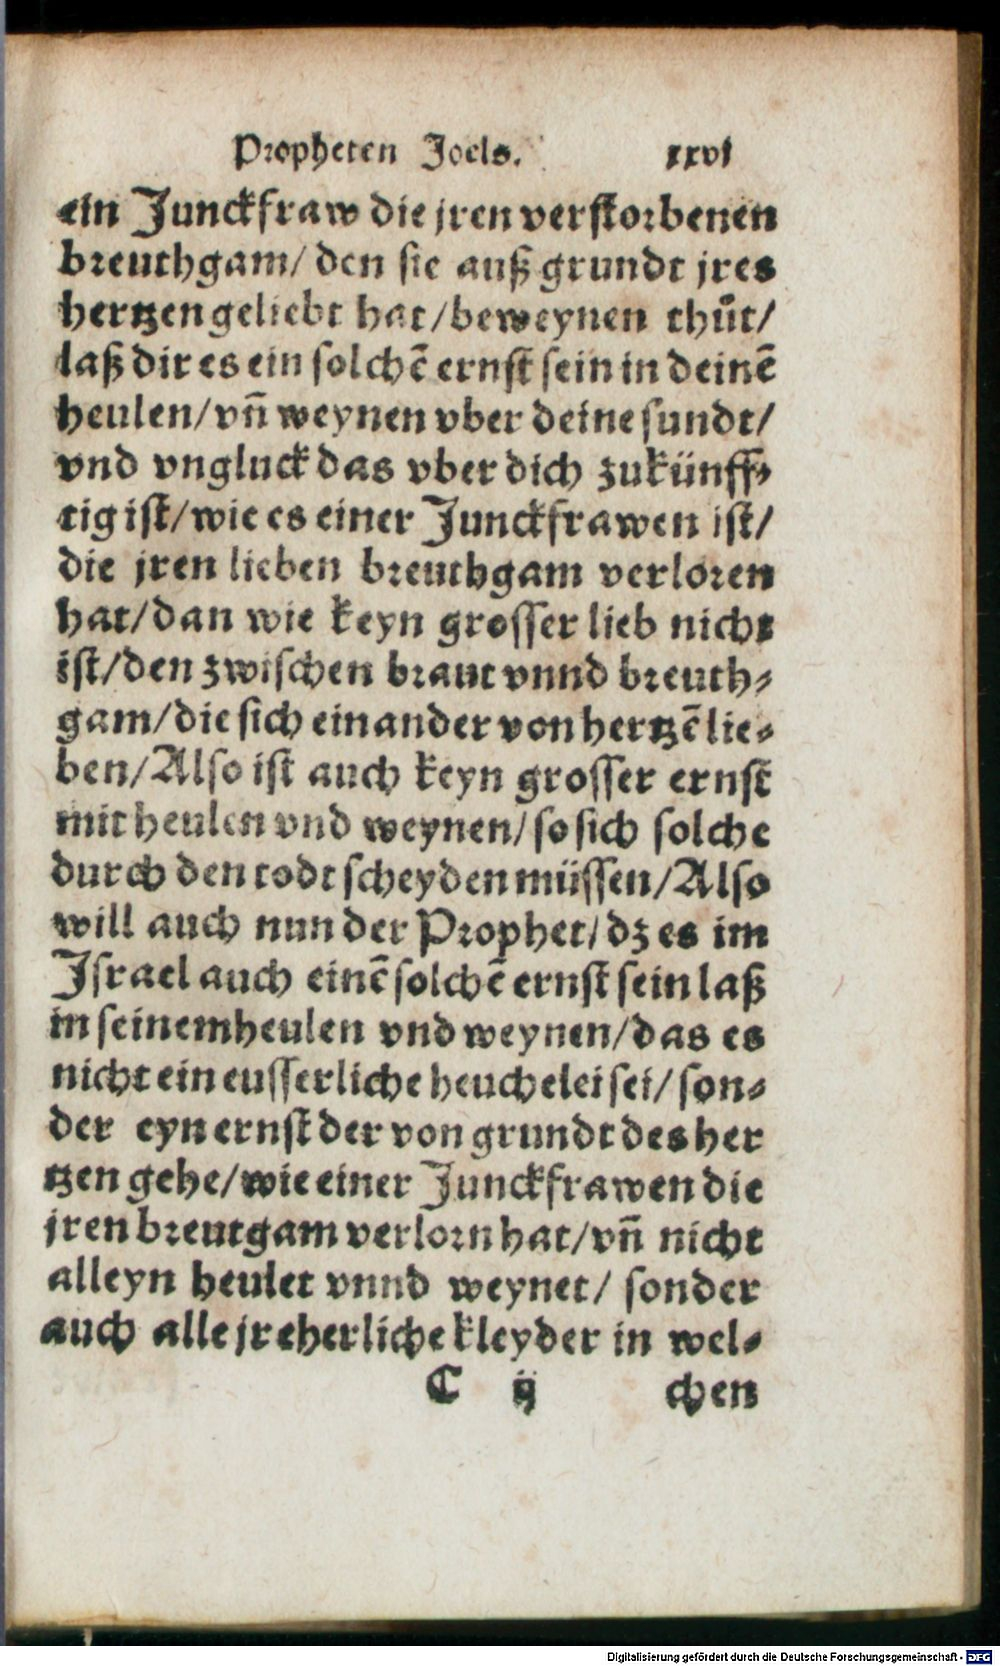 Propheten Joels. xxvi
ein Junckfraw die jren verstorbenen
breuthgam/ den sie auß grundt jres
hertzen geliebt hat/beweynen thůt/
laß dir es ein solchē ernst sein in deinē
heulen/vñ weynen vber deine sundt/
vnd vngluck das vber dich zukünff-
tig ist/wie es einer Junckfrawen ist/
die jren lieben breuthgam verloren
hat/dan wie keyn grosser lieb nicht
ist/den zwischen braut vnnd breuth-
gam/die sich einander von hertzē lie-
ben/Also ist auch keyn grosser ernst
mit heulen vnd weynen/so sich solche
durch den todt scheyden müssen/Also
will auch nun der Prophet/dz es im
Israel auch einē solchē ernst sein laß
in seinem heulen vnd weynen/das es
nicht ein eusserliche heuchelei sei/son-
der eyn ernst der von grundt des her
tzen gehe/wie einer Junckfrawen die
jren breutgam verlorn hat/vñ nicht
alleyn heulet vnnd weynet/ sonder
auch alle jr eherliche kleyder in wel-
C ij chen
Digitalisierung gefördert durch die Deutsche Forschungsgemeinschaft - DFG